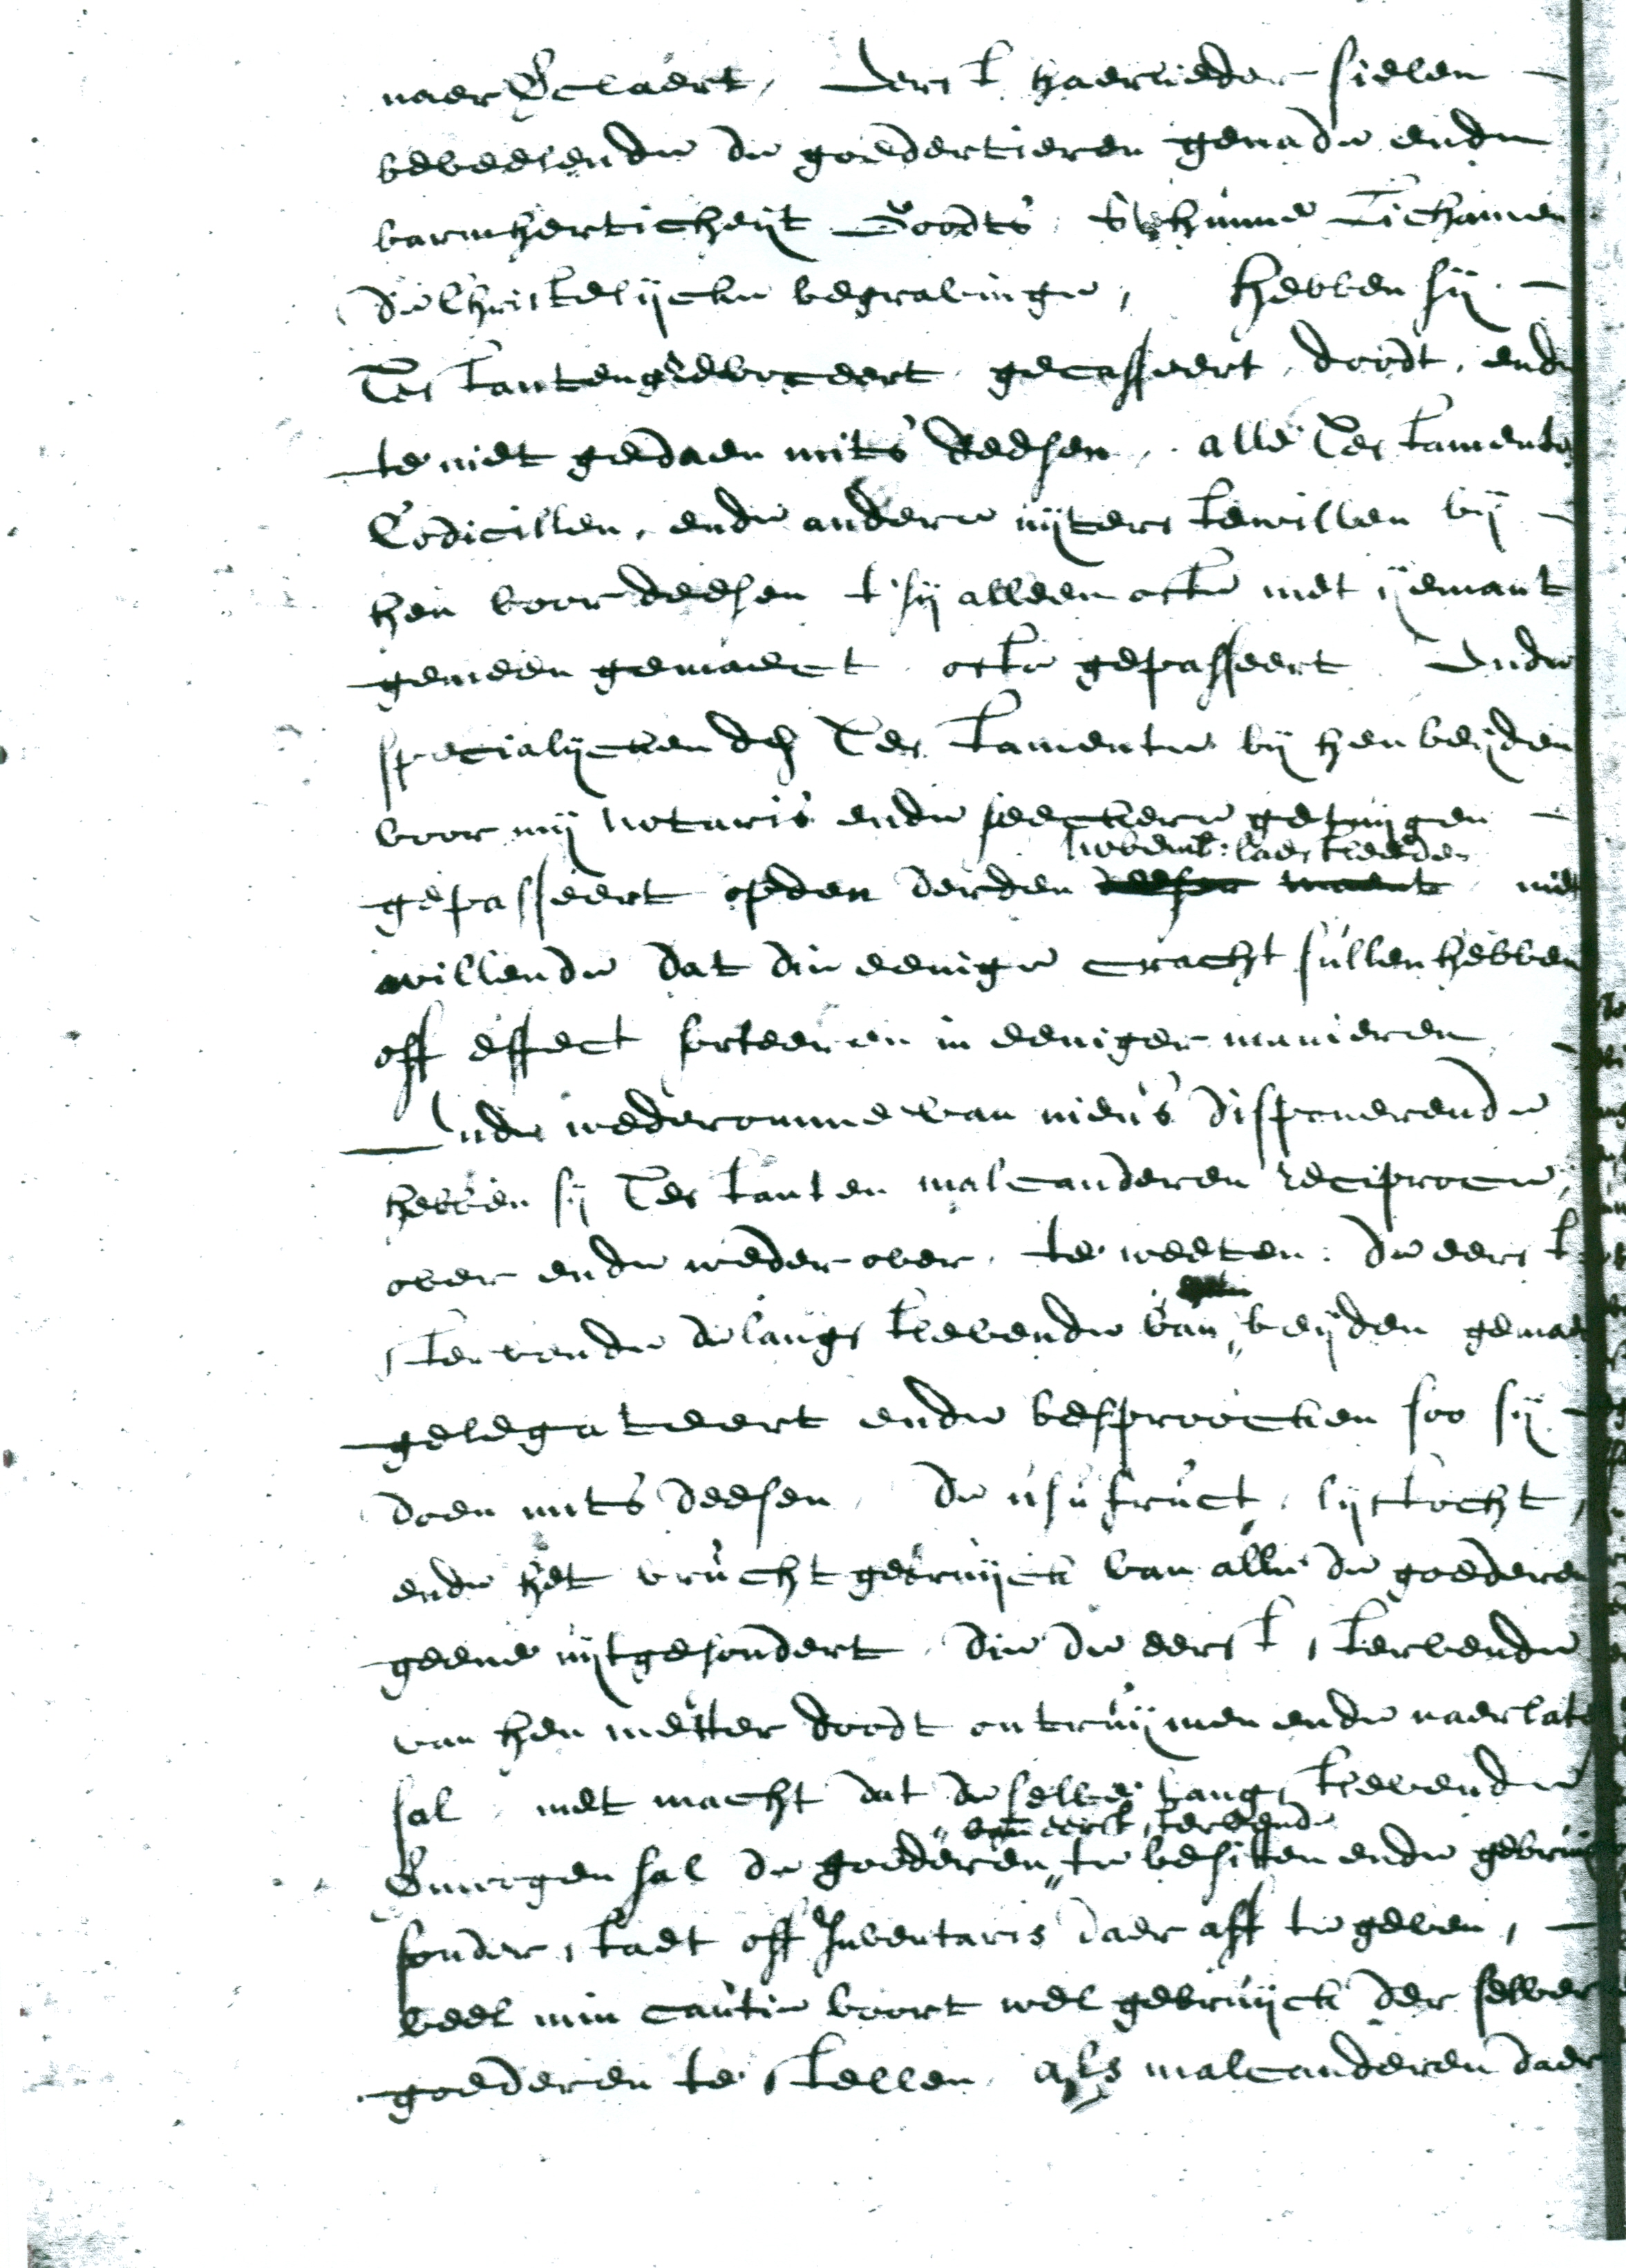 naer verclaert, Eerst haerlieder sielen
beveelende de goedertieren genade ende
barmherticheyt Goodts, hunne Lichamen
de Christelijcke begravinge, Hebben sij
Testanten gerevoceert gecasseert, doodt, ende
te niet gedaen mits deesen, alle Testamente
Codicillen, ende andere uyterste willen bij
hen voor deesen t'sij alleen ofte met ijemant
gemeen gemaect ofte gepasseert Ende
specialycken Testamente bij hen beyden
voor mij Notaris ende seeckere getuijgen
novemb: laestleeden
gepasseert op den derden deeser maent niet
willende dat die eenige cracht sullen hebben
off effect sorteeren in eeniger manieren
Ende wederomme van nieus disponerende
hebben sij Testanten malcanderen reciproce
over ende weder over, te weeten: de eerst
stervende de langstlevende van beyden gemaect
gelegateert ende besproocken soo sij
doen mits deesen, de usufruct, lijftocht,
ende het vruchtgebruyck van alle de goederen
geene uytgesondert, die de eerststervende
van hen metter doodt ontruijmen ende naerlaten
sal, met macht dat de selve langstlevende
van eerststervende
sal de goederen te besitten ende gebruijcken
sonder staet off Inventaris daer aff te geven,
veel min cautie voort wel gebruyck der selver
goederen te stellen, als malcanderen daer